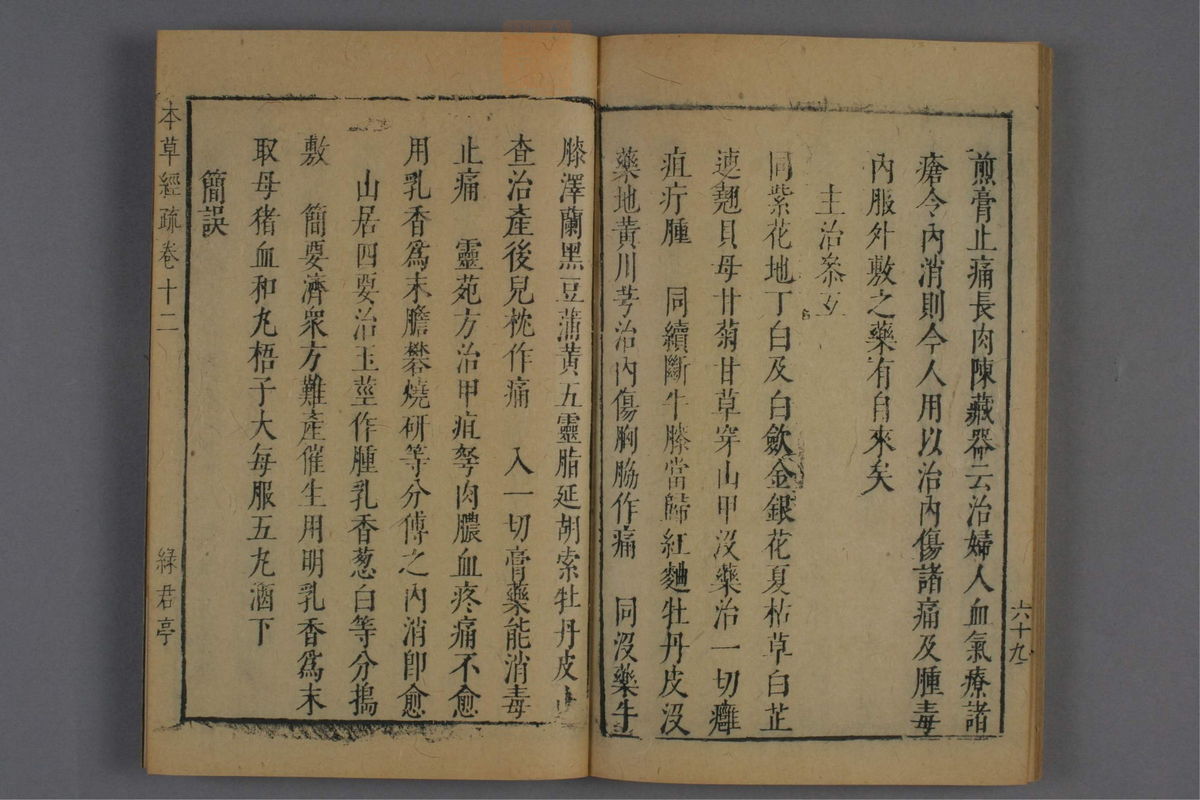 煎膏止痛長肉陳藏器云治婦人血氣療諸
瘡令內消則今人用以治內傷諸痛及腫毒
內服外敷之藥有自來矣
主治參互
同紫花地丁白及白歛金銀花夏枯草白芷
連翹貝母甘菊甘草穿山甲沒藥治一切癰
疽疔腫　同續斷牛膝當歸紅麯牡丹皮沒
藥地黃川芎治內傷胸脇作痛　同沒藥牛
六十九
膝澤蘭黑豆蒲黃五靈脂延胡索牡丹皮山
查治產後兒枕作痛　入一切膏藥能消毒
止痛　靈苑方治甲疽弩肉膿血疼痛不愈
用乳香爲末膽礬燒研等分傅之內消卽愈
山居四要治玉莖作腫乳香葱白等分搗
敷　簡要濟衆方難產催生用明乳香爲末
取母猪血和丸梧子大每服五丸酒下
簡誤
本草經疏卷十二
綠君亭